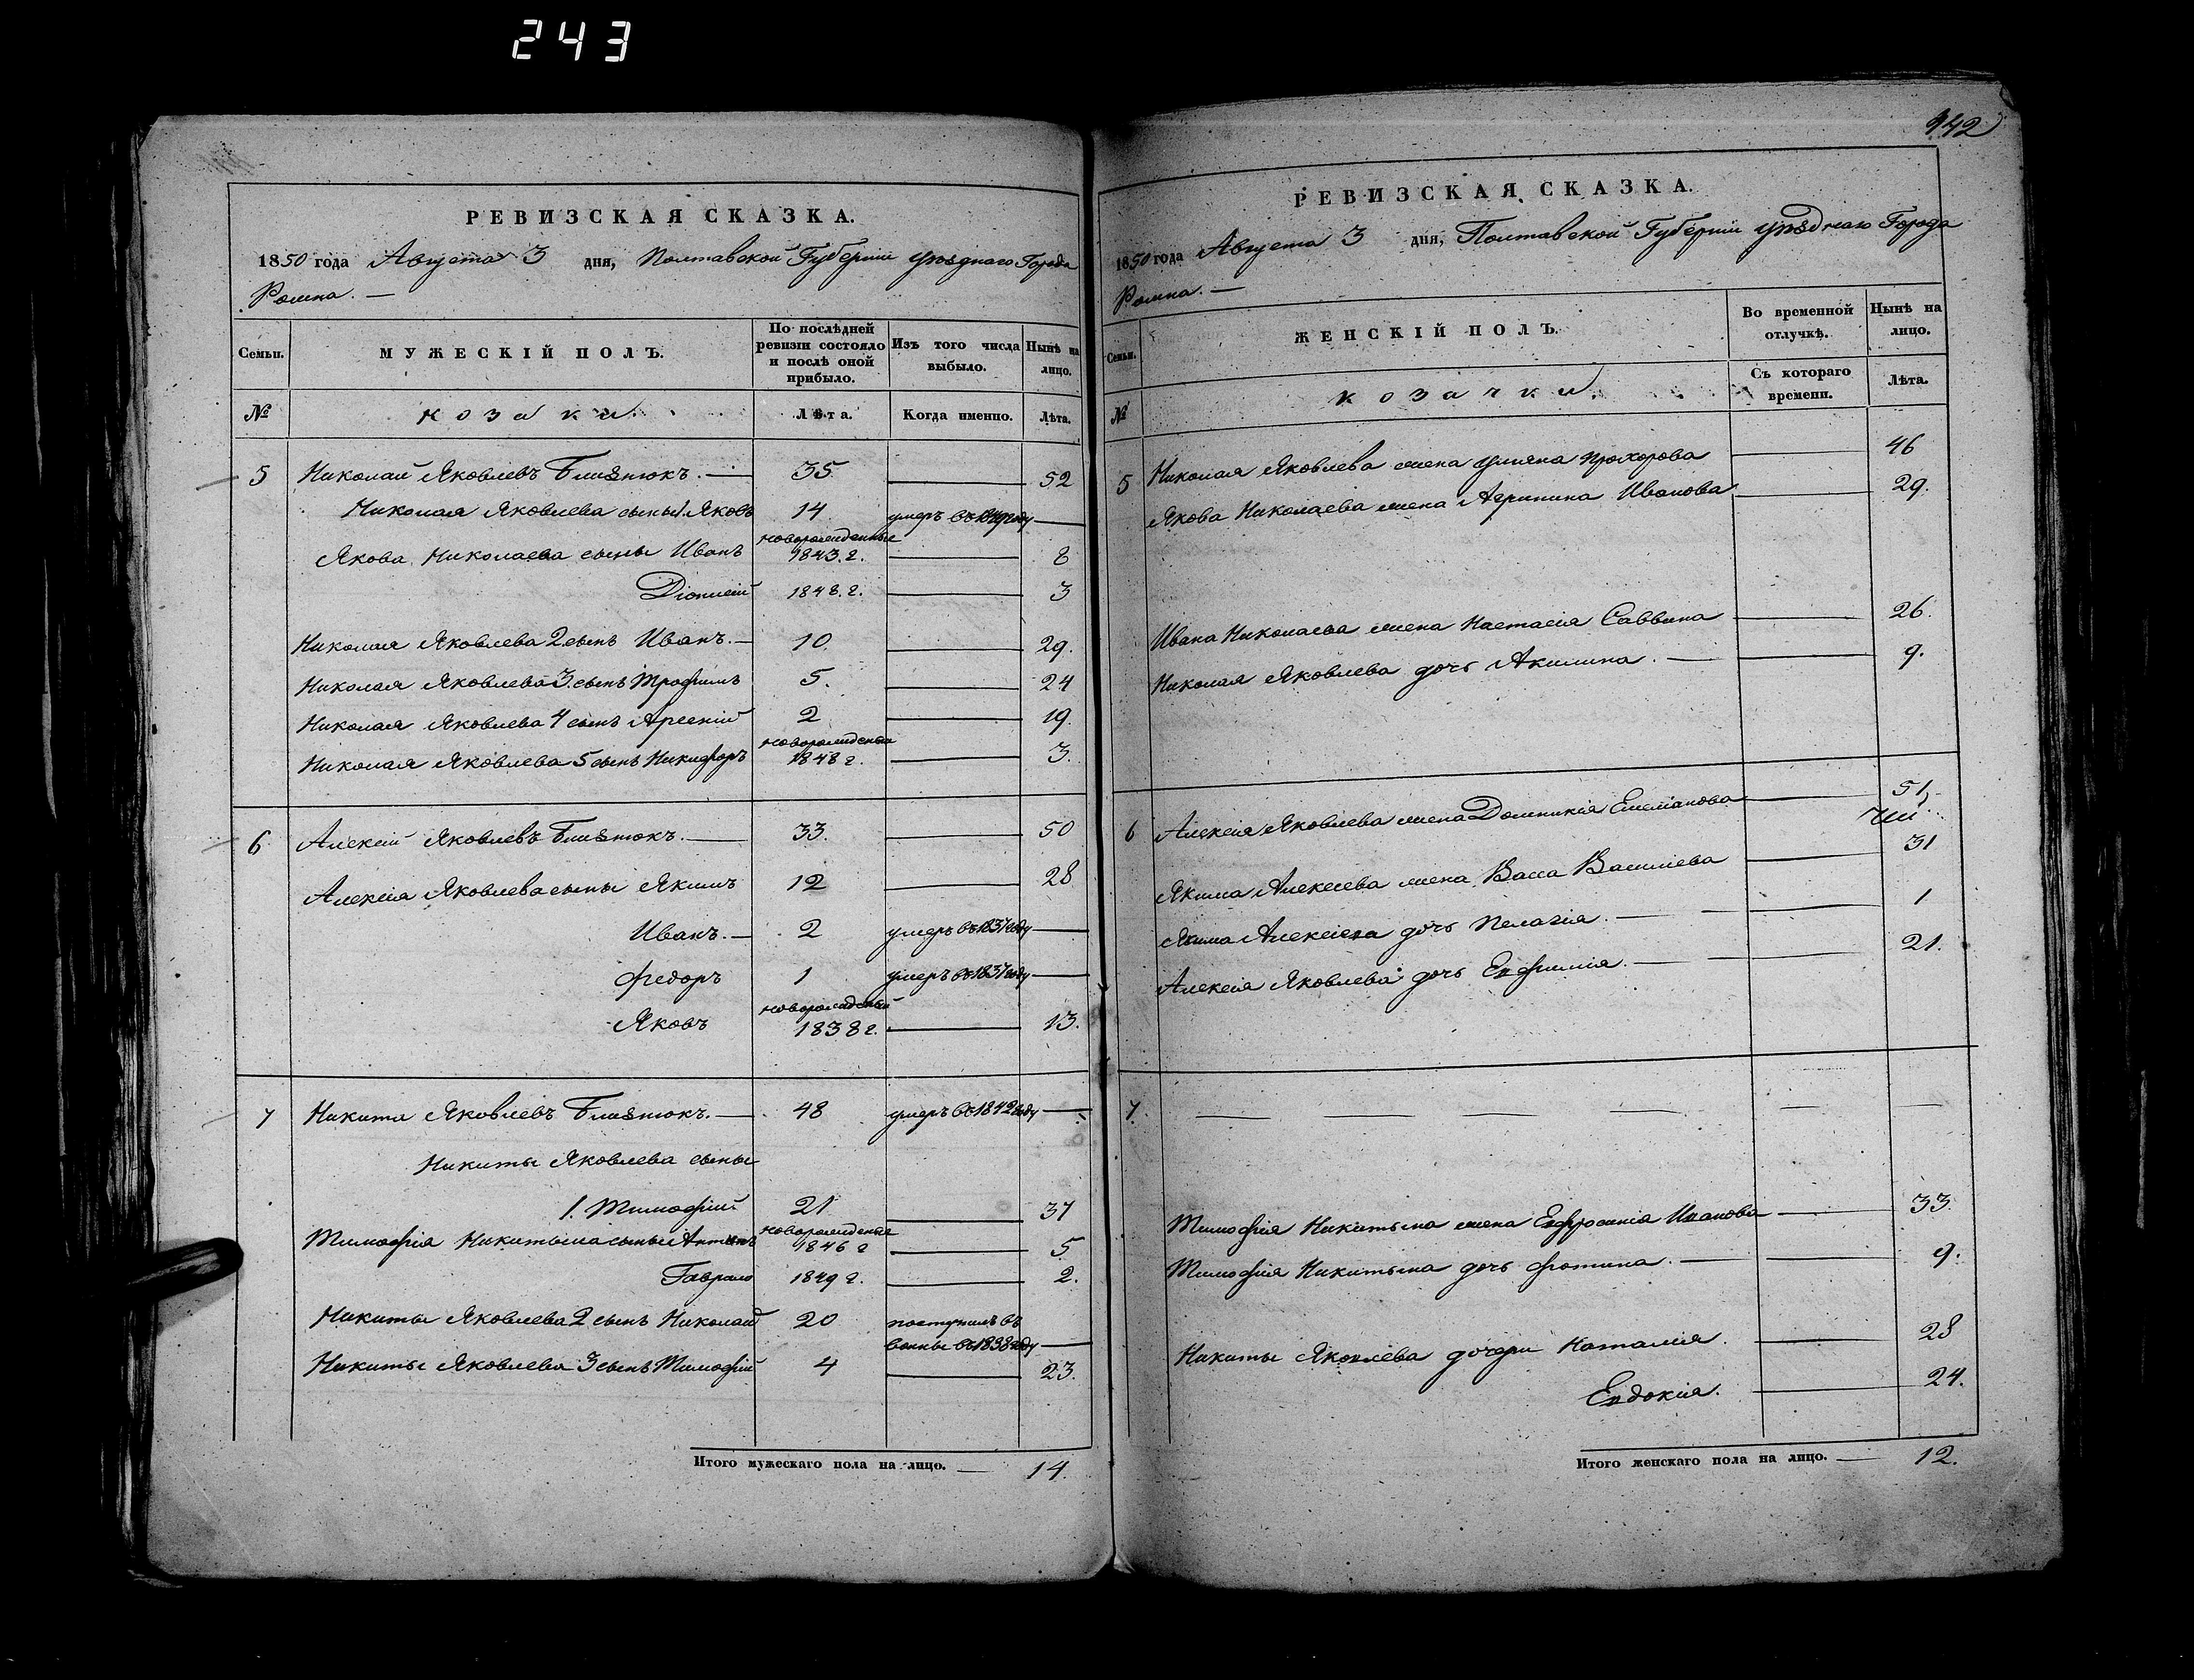 243
РЕВИЗСКАЯ СКАЗКА.
1850 года Августа 3 дня, Полтавской Губерніи уѣзднаго Города
Ромна. —
Семьи.
МУЖЕСКІЙ ПОЛЪ.
По послѣдней ревизіи состояло и послѣ оной прибыло.
Изъ того числа выбыло.
Нынѣ на лицо.
№
козаки.
Лѣта.
Когда именно.
Лѣта.
5 Николай Яковлевъ Близнюкъ. — 35. 52
Николая Яковлева сыны 1. Яковъ 14 умеръ въ году —
новорожденные
Якова Николаева сыны Иванъ 1843. г. 8
Діонисій 1848. г. 3
Николая Яковлева 2 сынъ Иванъ. — 10. 29.
Николая Яковлева 3. сынъ Трофимъ 5. 24
Николая Яковлева 4 сынъ Арсеній 2 19.
новорожденный
Николая Яковлева 5 сынъ Никифоръ 1848 г. 3.
6 Алексій Яковлевъ Близнюкъ. — 33. 50
Алексія Яковлева сыны Якимъ 12 28
Иванъ. — 2 умеръ въ 1837 году —
Федоръ 1 умеръ въ 1837 году —
новорожденный
Яковъ 1838 г. 13.
7 Никита Яковлевъ Близнюкъ. — 48 умеръ въ 1842 году —
Никиты Яковлева сыны
1. Тимофій 21 37
новорожденные
Тимофія Никитина сыны Антонъ 1846 г 5
Гаврило 1849 г. 2.
Никиты Яковлева 2 сынъ Николай 20 поступилъ въ
воины въ 1838 году —
Никиты Яковлева 3 сынъ Тимофій 4 23.
Итого мужескаго пола на лицо. — 14.
142
РЕВИЗСКАЯ СКАЗКА.
1850 года Августа 3 дня, Полтавской Губерніи уѣзднаго Города
Ромна. —
Семьи.
ЖЕНСКІЙ ПОЛЪ.
Во временной отлучкѣ.
Нынѣ на лицо.
№
козачки.
Съ котораго времени.
Лѣта.
5 Николая Яковлева жена Уліяна Прохорова 46
Якова Николаева жена Агрипина Иванова 29.
Ивана Николаева жена Настасія Саввина 26.
Николая Яковлева дочь Акилина. — 9.
6 Алексія Яковлева жена Домникія Емеліанова 51
Якима Алексеева жена Васса Василіева 31
Якима Алексіева дочь Пелагія. — 1
Алексія Яковлева дочь Евфимія. — 21.
7. — — — — — —
Тимофія Никитина жена Евфросинія Иванова 33.
Тимофія Никитина дочь Фотина. — 9.
Никиты Яковлева дочери Наталія. 28
Евдокія. 24.
Итого женскаго пола на лицо. — 12.